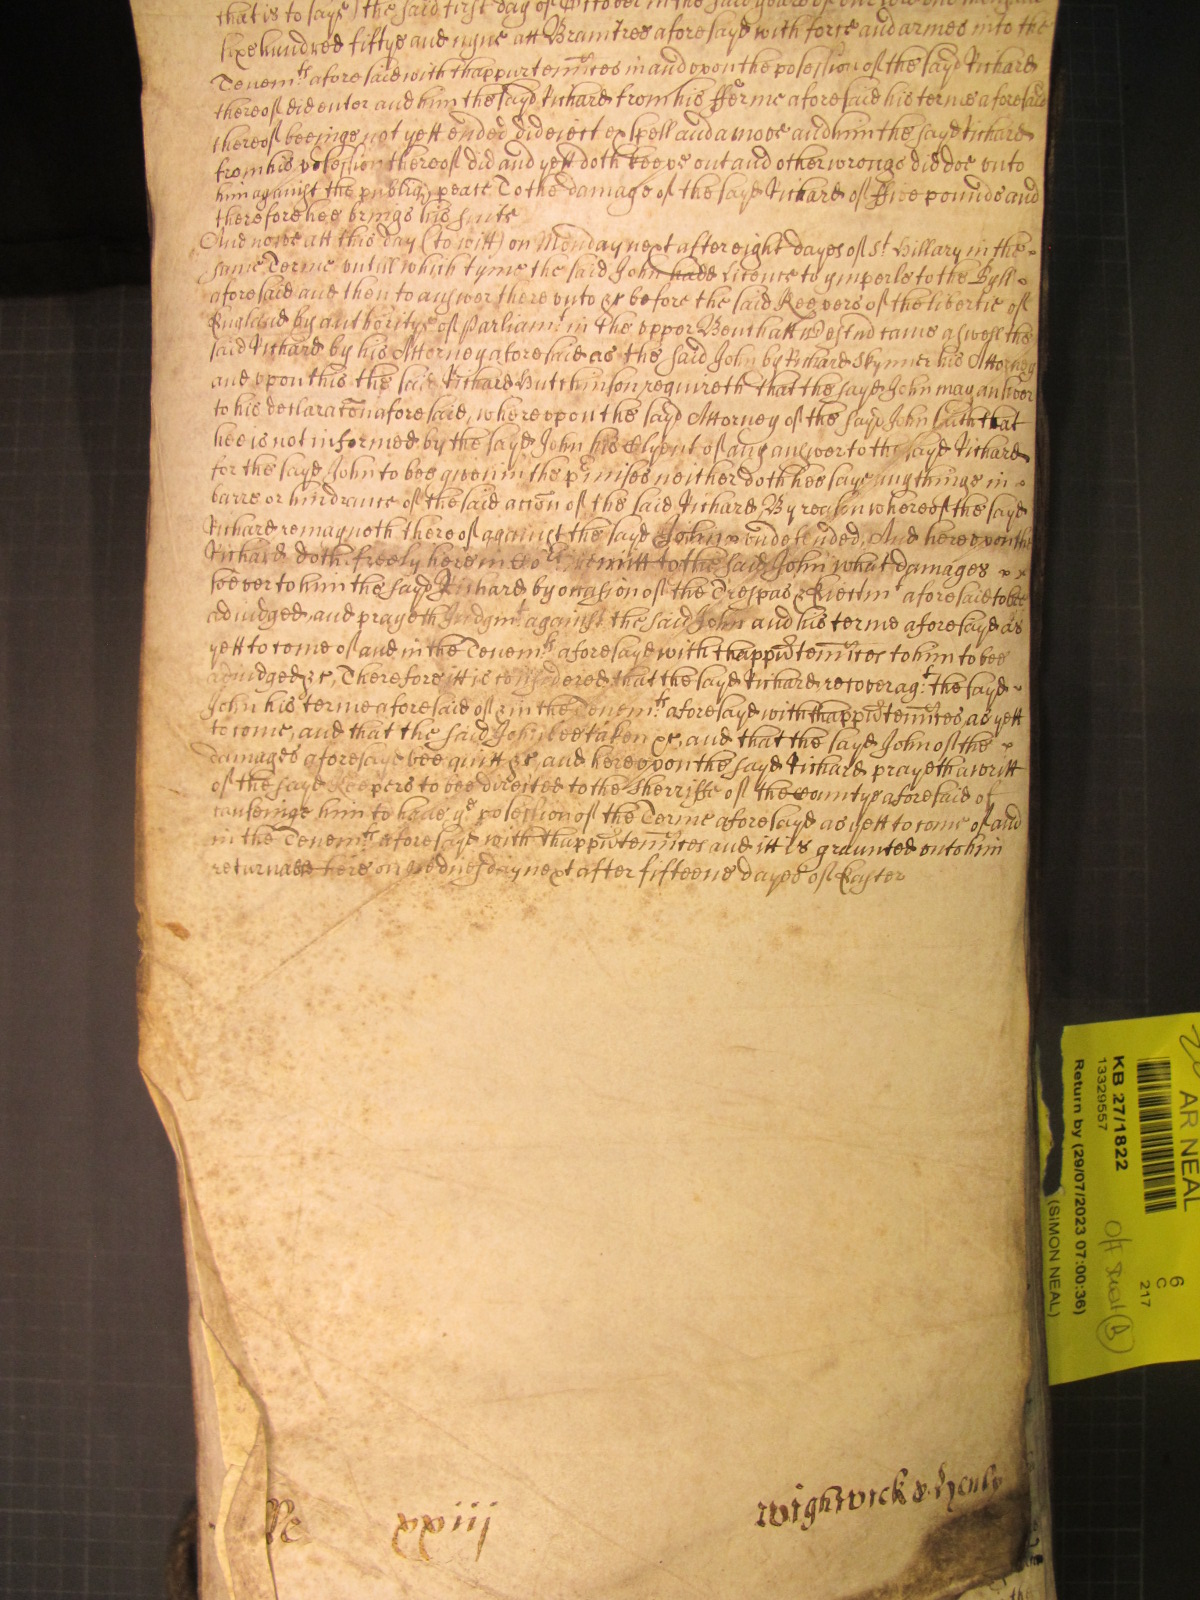 that is to saye) the said first day of October in the said yeare of our Lord one thousand
sixe hundred fiftye and nyne att Braintree aforesayd with force and armes into the
Tenemts aforesaid with thappurtennces in and upon the possession of the sayd Richard
thereof did enter and him the sayd Richard from his fferme aforesaid his terme aforesaid
thereof beeinge not yett ended did eiect expell and amove and him the sayd Richard
from his possession thereof did and yett doth keepe out and other wrongs did doe unto
him against the publiq peace To the damage of the sayd Richard of ffive pounds and
therefore hee brings his suite
And nowe att this day (to witt) on Monday next after eight dayes of St Hillary in the
same Terme untill which tyme the said John hadd licence to imparle to the Byll
aforesaid and then to answer thereunto &c before the said Keepers of the libertie of
England by authoritye of Parliamt in the upper Bench att Westmr came aswell the
said Richard by his Attorney aforesaid as the said John by Richard Skynner his Attorney
and upon this the said Richard Hutchinson requireth that the sayd John may answer
to his declaracon aforesaid, whereupon the sayd Attorney of the sayd John saith that
hee is not informed by the sayd John his Clyent of any answer to the sayd Richard
for the sayd John to bee given in the pmises neither doth hee saye any thinge in
barre or hindrance of the said accon of the said Richard, By reason whereof the sayd
Richard remayneth thereof against the sayd John undefended, And hereupon the
Richard doth freely here in Court remitt to the said John what damages
soever to him the sayd Richard by occasion of the Trespas & Eiectmt aforesaid to bee
adiudged and prayeth Iudgmt against the said John and his terme aforesayd as
yett to come of and in the Tenemts aforesayd with thappurtennces to him to bee
adiudged &c, Therefore itt is considered that the sayd Richard recover agt the sayd
John his terme aforesaid of & in the Tenemts aforesayd with thappurtennces as yett
to come, and that the said John bee taken &c, and that the sayd John of the
damages aforesayd bee quitt &c, and hereupon the sayd Richard prayeth a writt
of the sayd Keepers to bee directed to the Sherriffe of the countye aforesaid of
causeinge him to have ye possession of the Terme aforesayd as yett to come of and
in the Tenemts aforesayd with thappurtennces and itt is graunted unto him
returnable here on Wednesday next after fifteene dayes of Easter
Ro xxiij
Wightwick & Henly
AR NEAL
KB 27/1822
13329557
Return by (29/07/2023 07:00:36)
(SIMON NEAL)
6
C
217